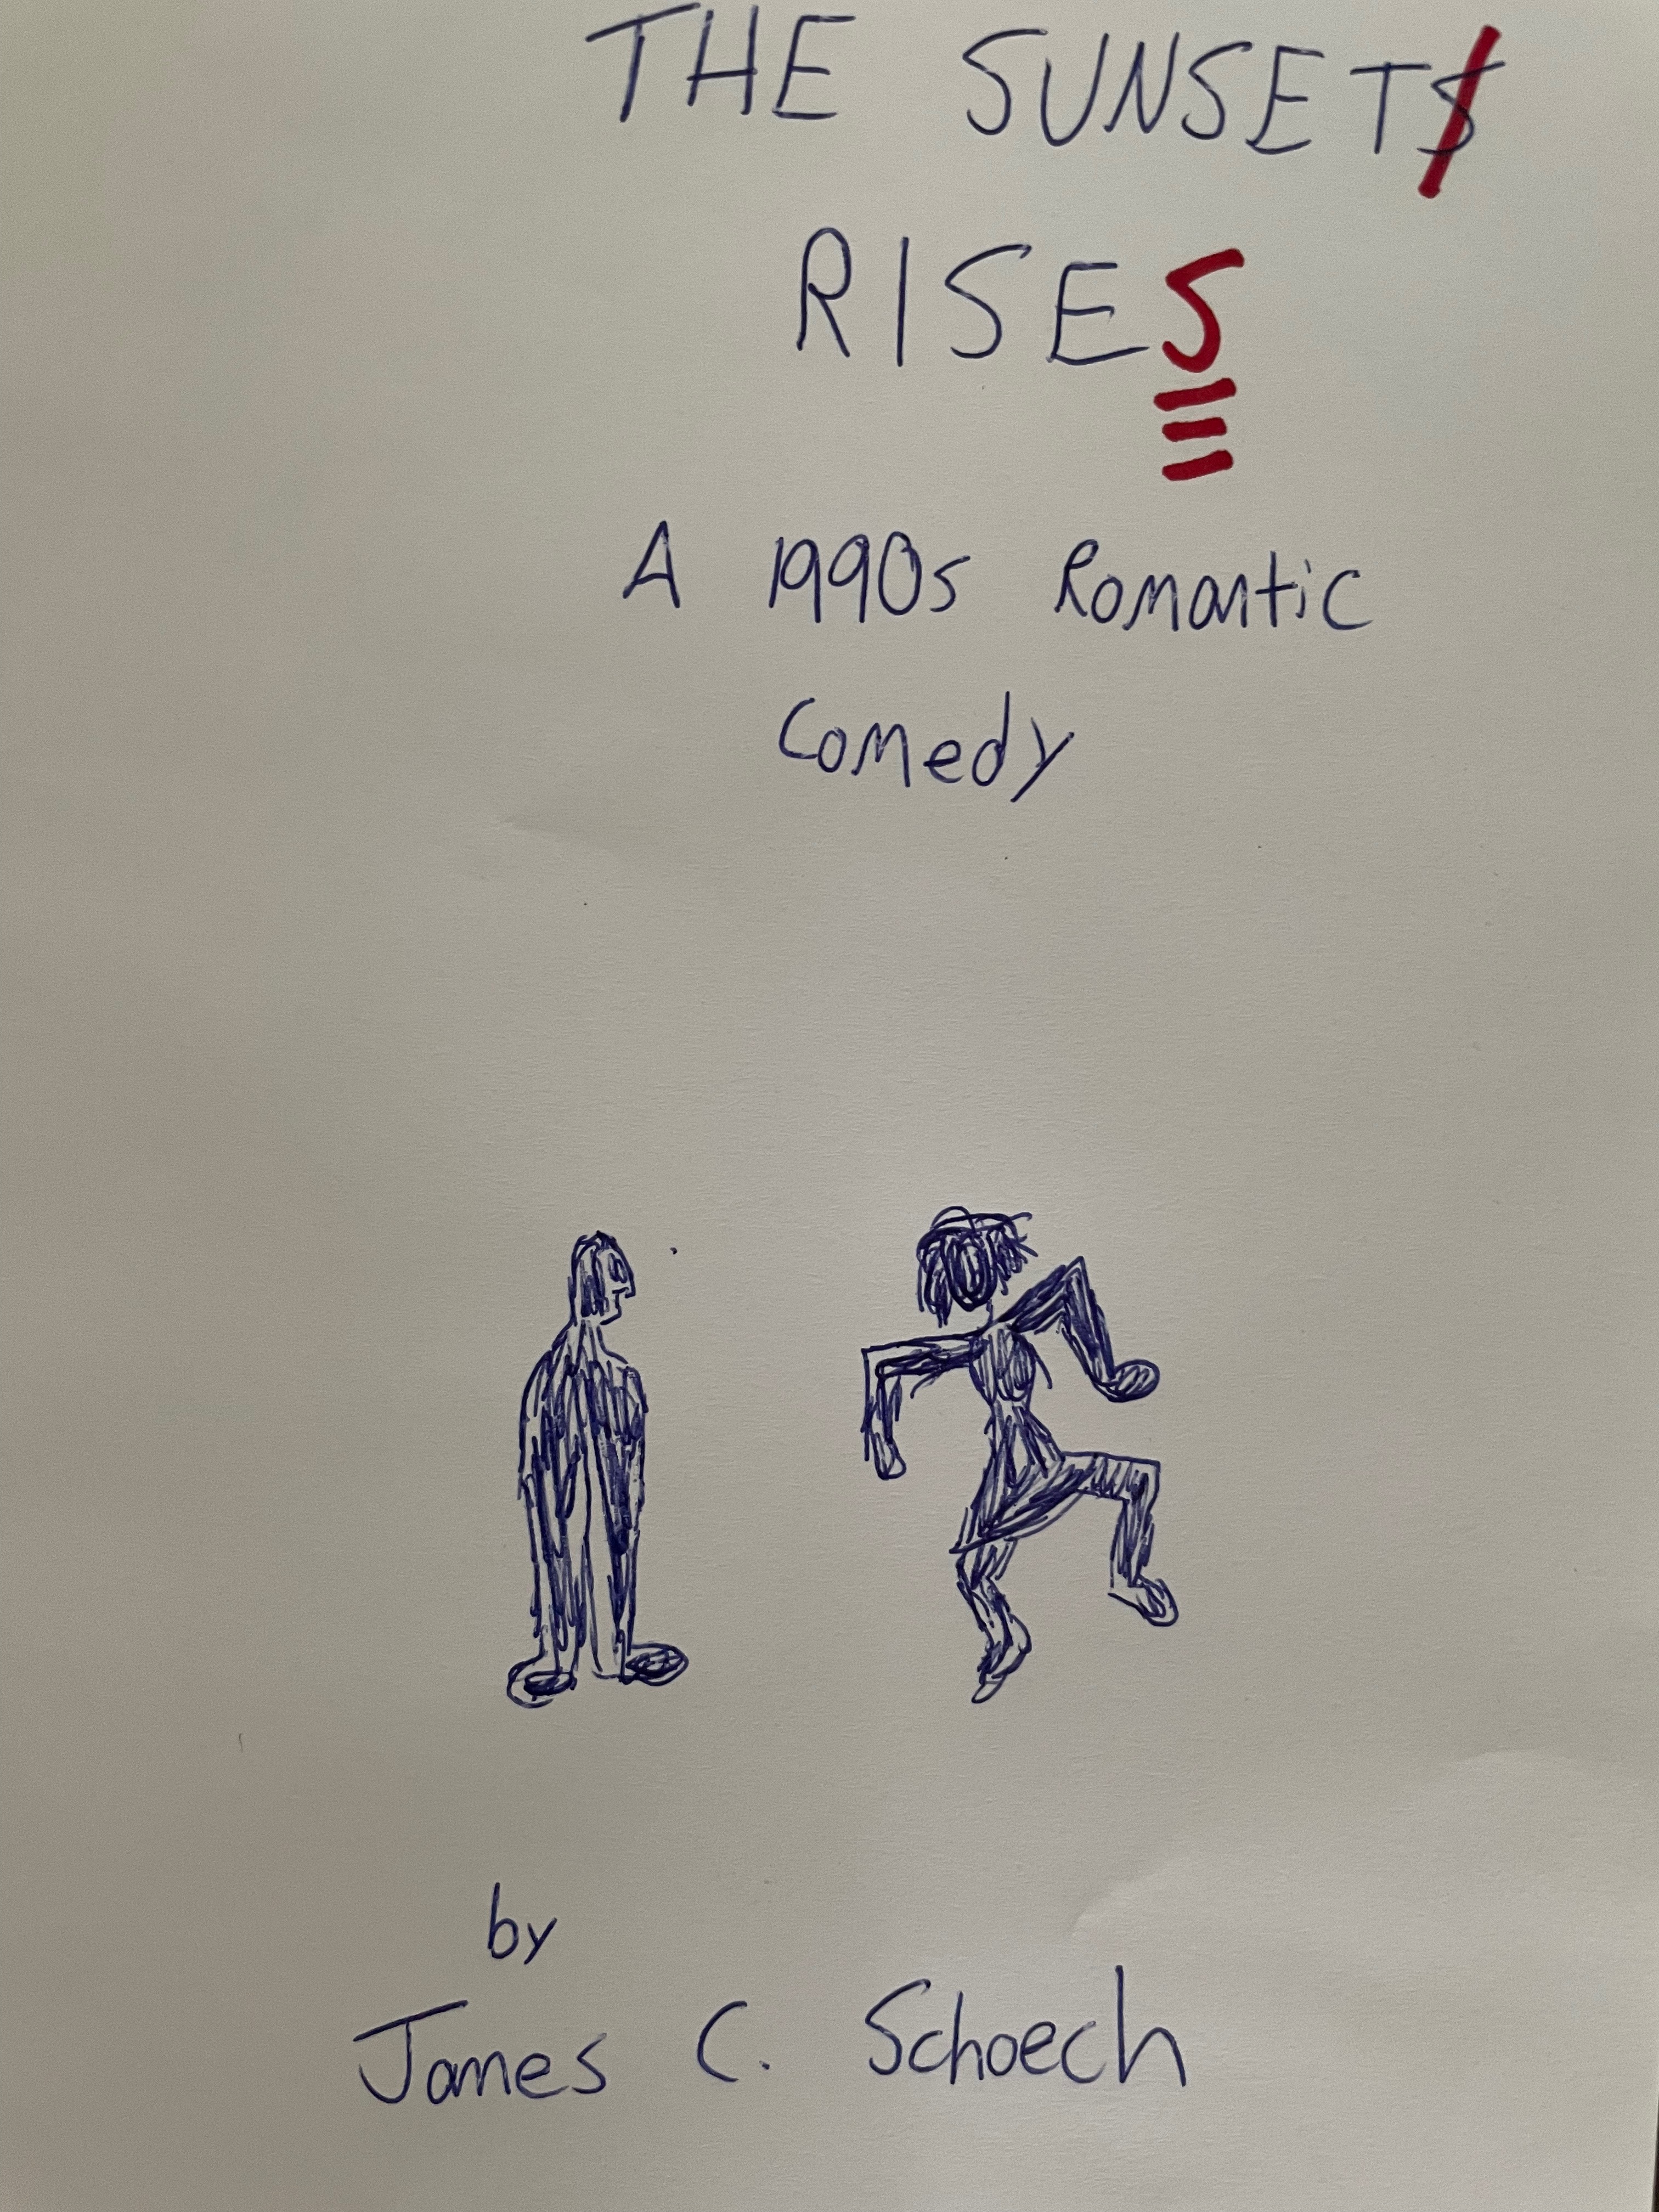 THE SUNSETS
RISES
A 1990s Romantic
Comedy
by
James C. Schoech